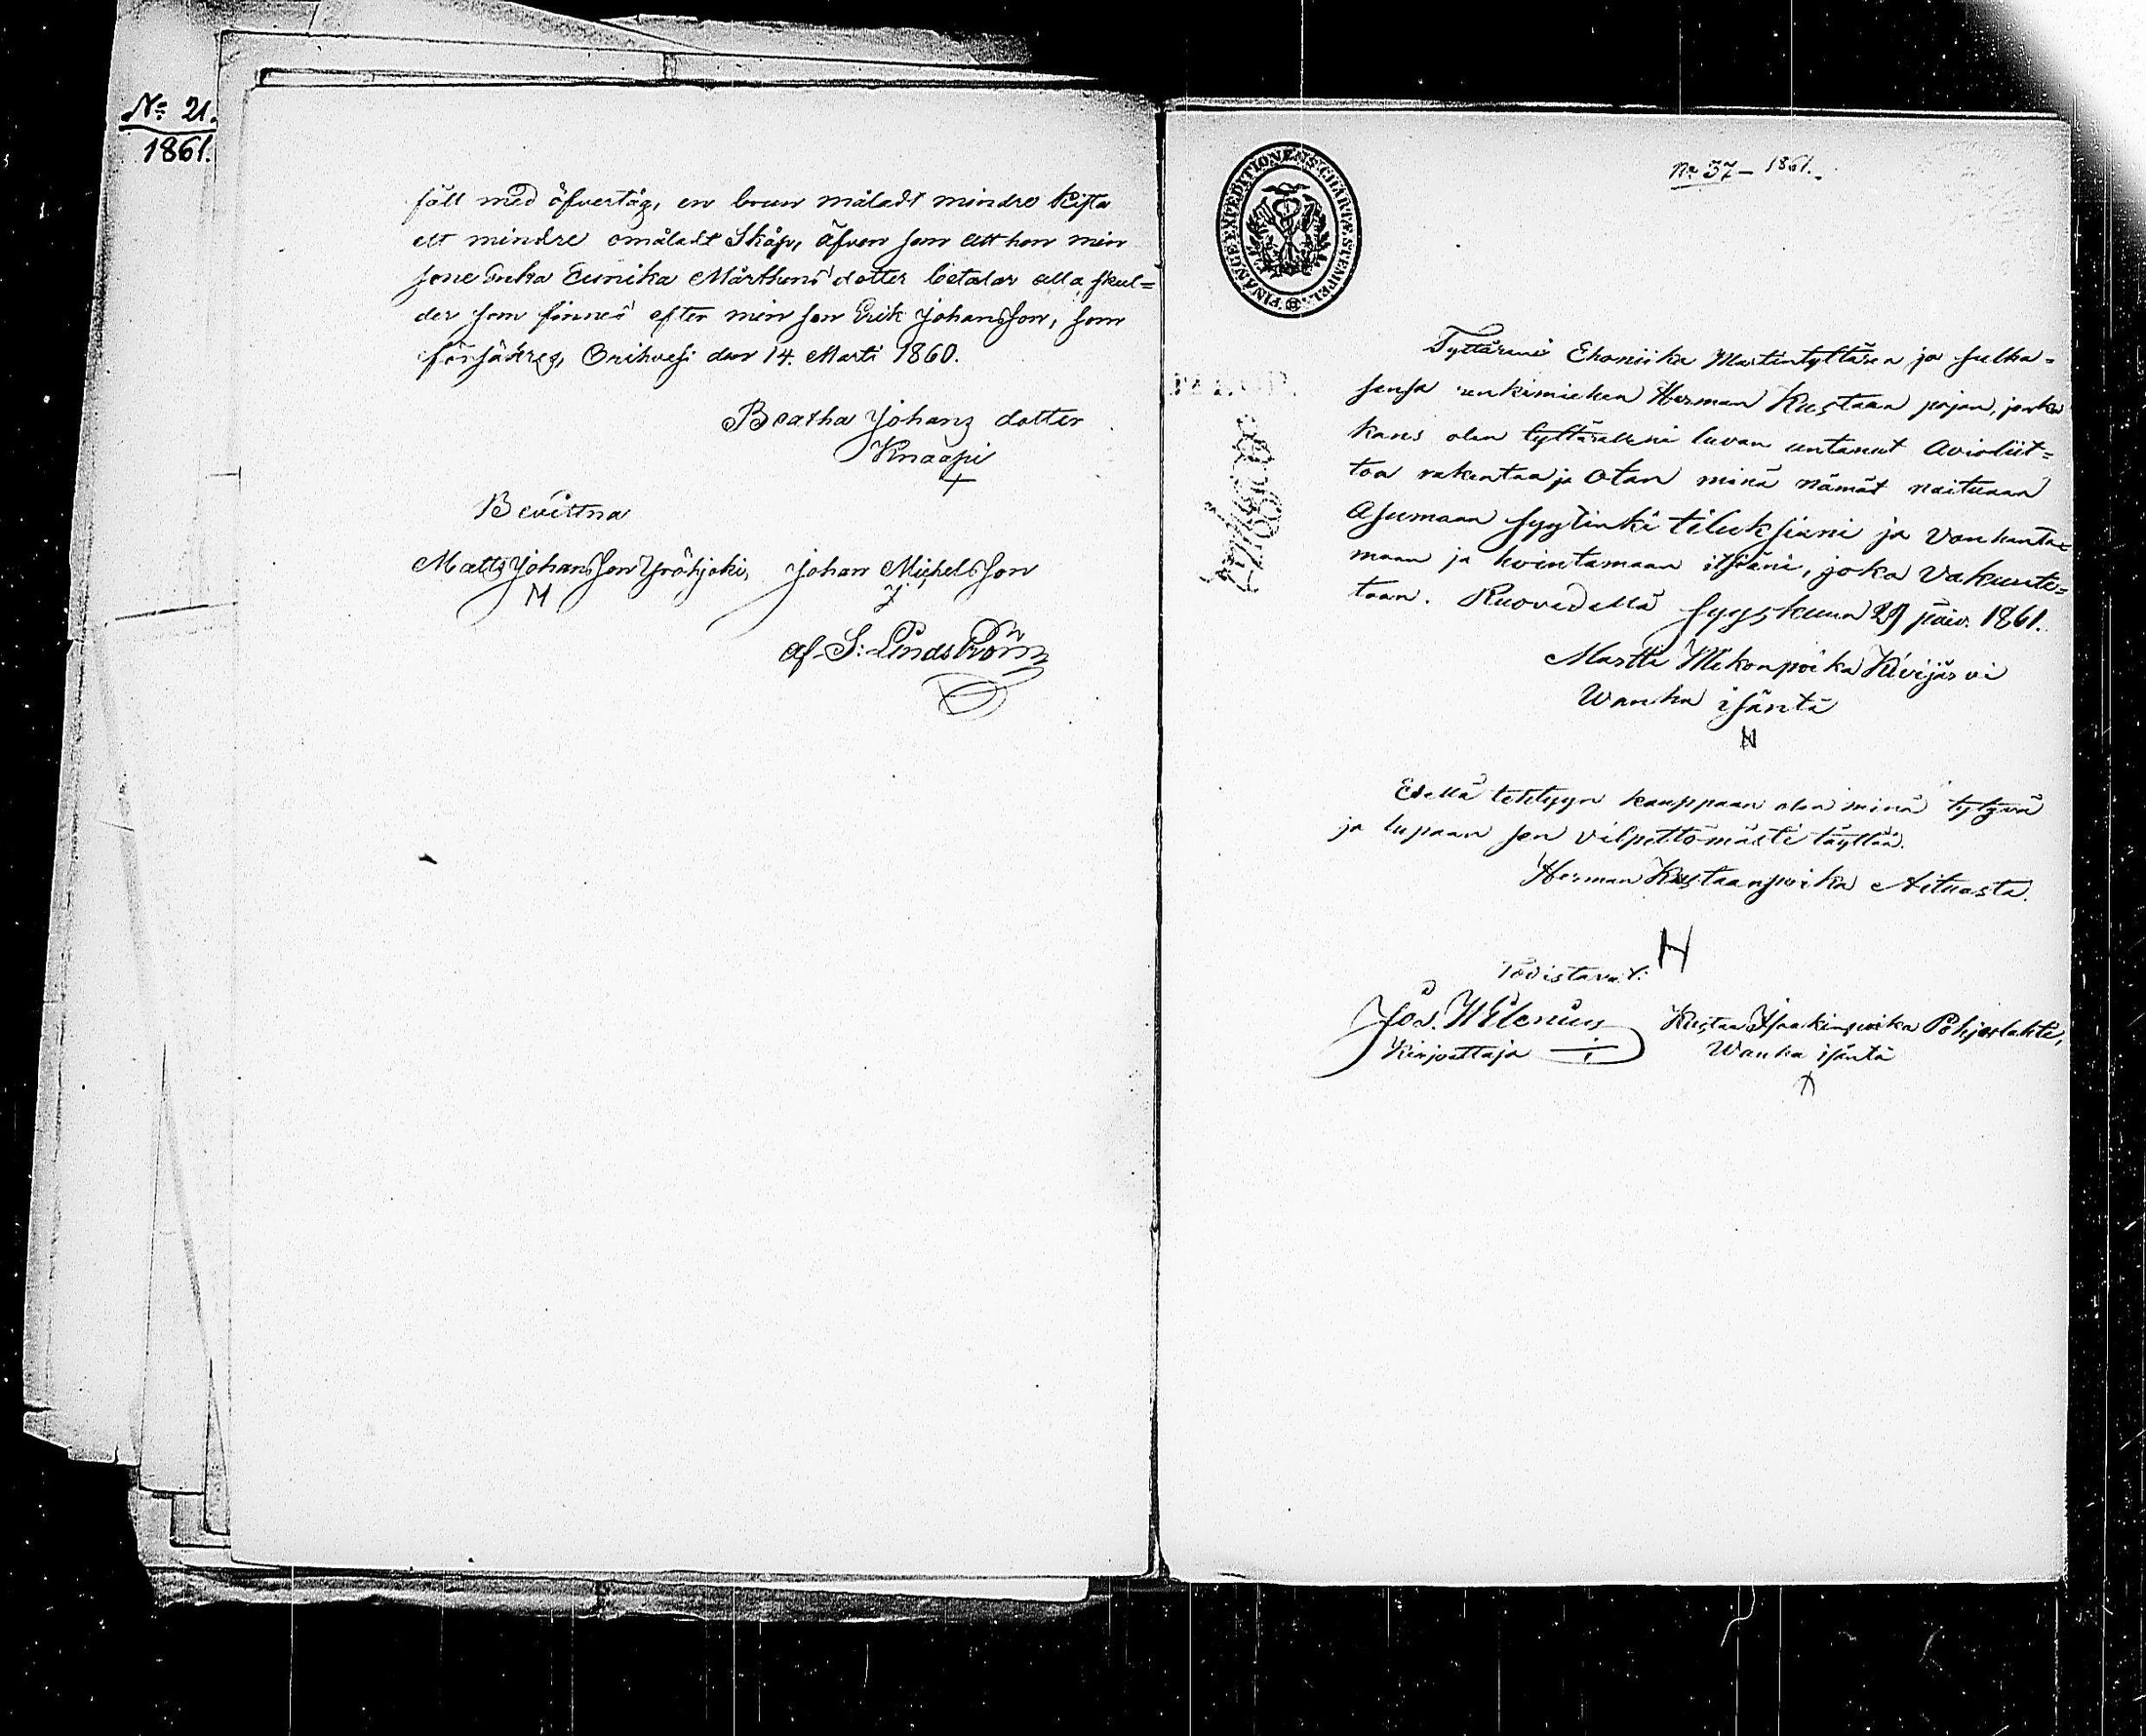 No 21.
1861.
fäll med öfvertåg, en brun måladt mindre kista
ett mindre omåladt Skåp, äfven som att hon min
sone Enka Eunika Mårthens dotter betalar alla skul=
der som finnes efter min son Erik Johansson, som
försäkras, Orihvesi den 14. Marti 1860.
Beatha Johans dotter
Knaapi
+
Bevittna
Matts Johansson Yröhjoki, Johan Michelsson
af S: Lindström
No 37 – 1861.
FINANCE EXPEDITIONENS CHARTÆ STEMPEL
Tyttäreni Ehoniika Martintyttären ja sulha=
sensa renkimiehen Herman Kustaan pojan, jonka
kans olen tyttärelleni luvan antanut Avioliit=
toa rakentaa ja Otan minä nämät naituaan
Asumaan syytinki tiluksiani ja Vanhenta=
maan ja hointamaan itsiäni, joka Vakuute=
taan. Ruovedellä Syyskuun 29 päiv. 1861.
Martti Mikonpoika Kivijärvi
Wanha isäntä
Edellä tehtyyn kauppaan olen minä tytyvä
ja lupaan sen vilpettömästi täyttää.
Herman Kustaanpoika Aituasta.
Todistavat:
Jos. Wilenius Kustaa Isaakinpoika Pohjaslahti,
Kirjoittaja Wanha isäntä